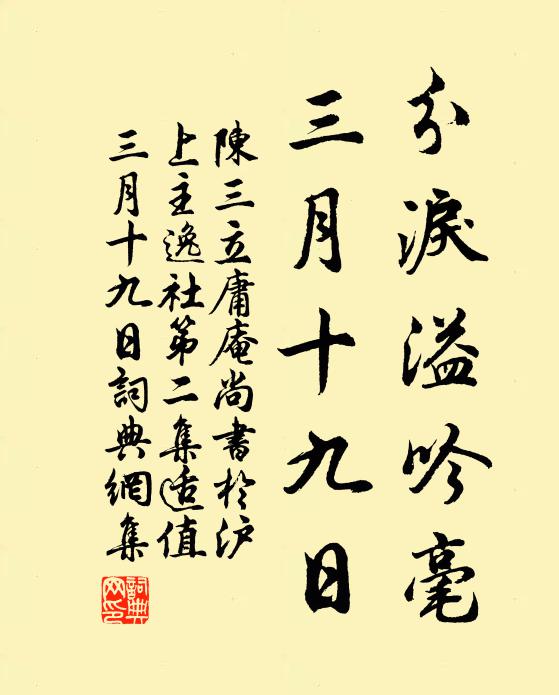 分淚溢吟毫
三月十九日
陳三立庸庵尚書於沪
上主逸社第二集适值
三月十九日詞典網集
詞典網印